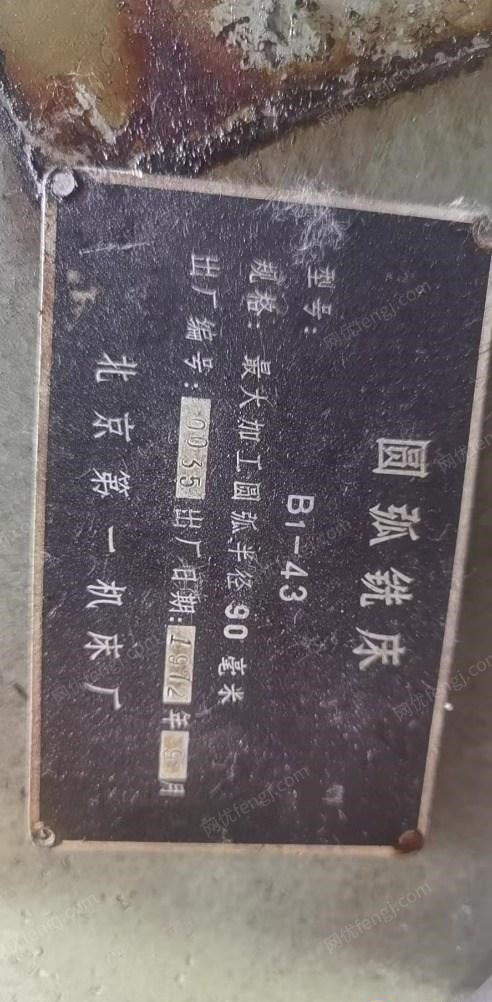 圆弧铣床
型号: B1-43
规格: 最大加工圆弧半径90毫米
出厂编号: 0035 出厂日期: 1972年6月
北京第一机床厂
网优fengj.com